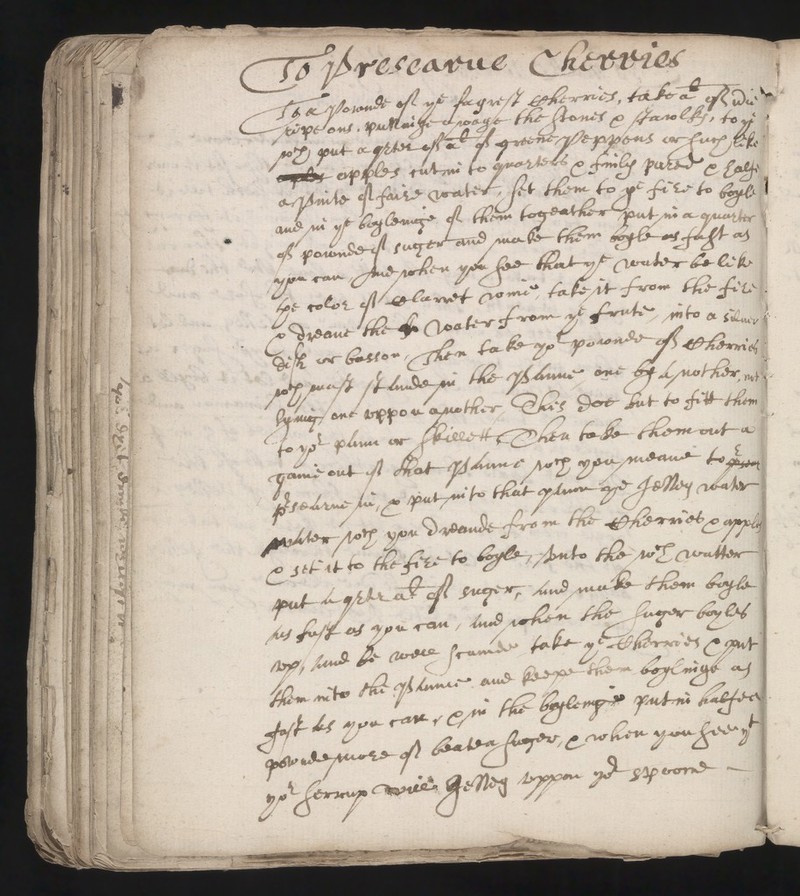 To Prescarue Cherries
To a Pownde of ye fayrest Cherries, take a li of
ripe ons, putting awaye the stones & stawlks, to ye
wch put a qrter of a li of greene Peppens or such like
apples cut in to quarters & finly pared & halfe
a Pinte of faire water, set them to ye fire to boyle
and in ye boyleinge of them togeather put in a quarter
of pownde of suger and make them boyle as fast as
you can, And when you see that ye water be like
the color of Clarret wine, take it from the fire
& dreane the water from ye frute, into a siluer
dish or basson, Then take yor pownde of Cherries
wch must stande in the Panne one by another, not
lyinge one vppon another, This doe but to fitt them
to yor pann or skillett, Then take them out a
gaine out of that Panne wch you meane to
prsearue in, & put into that pann ye Jelley water
water wch you dreande from the Cherries & apples
& set it to the fire to boyle, vnto the wch watter
put a qrter a li of suger, And make them boyle
as fast as you can, And when the suger boyles
vp, And be well scumde take ye Cherries & put
them into the Panne and keepe them boylinge as
fast as you can, & in the boyleinge put in halfe a
pownde more of beaten suger, & when you see yt
yor serrup will Jelley vppon yor spoone